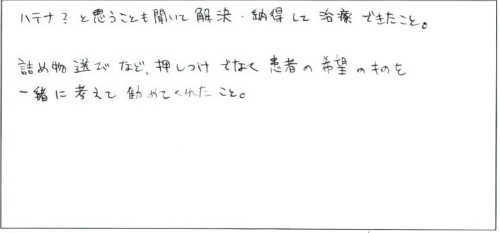 ハテナ?と思うことも聞いて解決・納得して治療できたこと。
詰め物選びなど、押しつけでなく患者の希望のものを
一緒に考えて勧めてくれたこと。